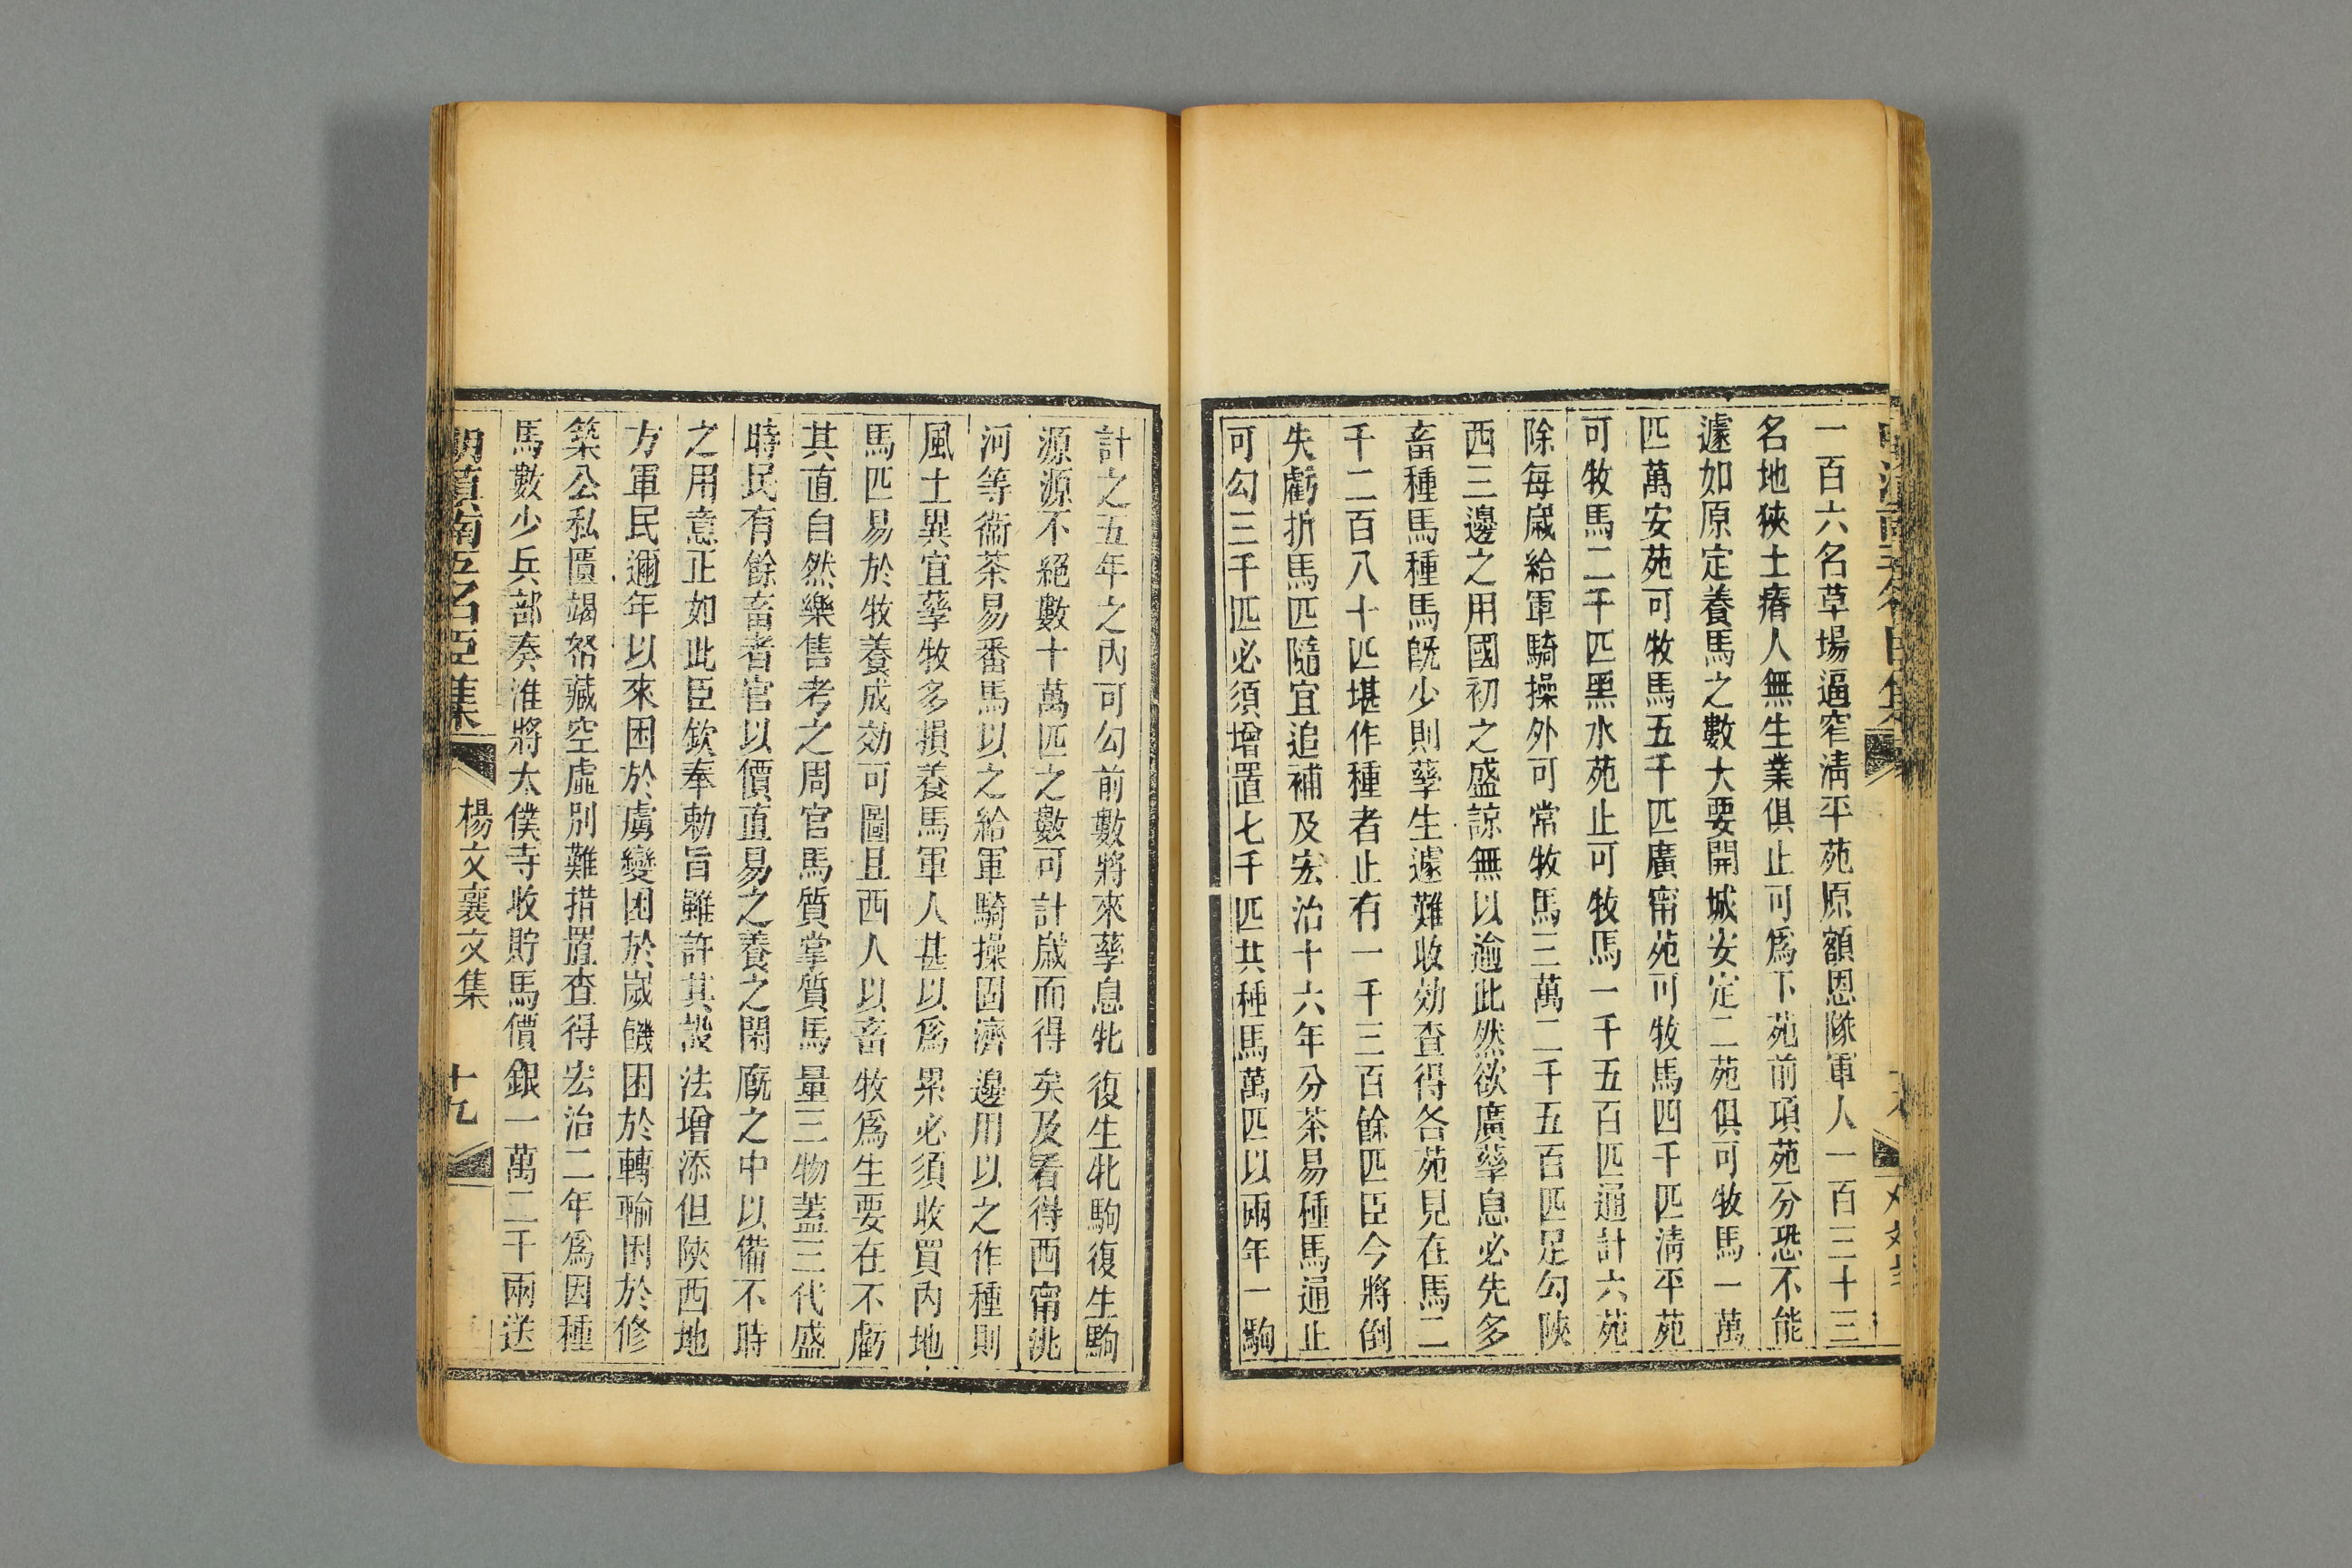 一百六名草場逼窄清平苑原額恩隊軍人一百三十三
名地狹土瘠人無生業俱止可爲下苑前項苑分恐不能
遽如原定養馬之數大要開城安定二苑俱可牧馬一萬
匹萬安苑可牧馬五千匹廣甯苑可牧馬四千匹清平苑
可牧馬二千匹黑水苑止可牧馬一千五百匹通計六苑
除每歲給軍騎操外可常牧馬三萬二千五百匹足勾陝
西三邊之用國初之盛諒無以逾此然欲廣孳息必先多
畜種馬種馬旣少則孳生遽難收効查得各苑見在馬二
千二百八十匹堪作種者止有一千三百餘匹臣今將倒
失虧折馬匹隨宜追補及宏治十六年分茶易種馬通止
可勾三千匹必須增置七千匹共種馬萬匹以兩年一駒
計之五年之內可勾前數將來孳息牝復生牝駒復生駒
源源不絕數十萬匹之數可計歲而得矣及看得西甯洮
河等衞茶易番馬以之給軍騎操固濟邊用以之作種則
風土異宜孳牧多損養馬軍人甚以爲累必須收買內地
馬匹易於牧養成効可圖且西人以畜牧爲生要在不虧
其直自然樂售考之周官馬質掌質馬量三物蓋三代盛
時民有餘畜者官以價直易之養之閑廐之中以備不時
之用意正如此臣欽奉勅旨雖許其設法增添但陝西地
方軍民邇年以來困於虜變困於歲饑困於轉輸困於修
築公私匱竭帑藏空虛別難措置查得宏治二年爲因種
馬數少兵部奏准將太僕寺收貯馬價銀一萬二千兩送
明滇南五名臣集 楊文襄文集 十九